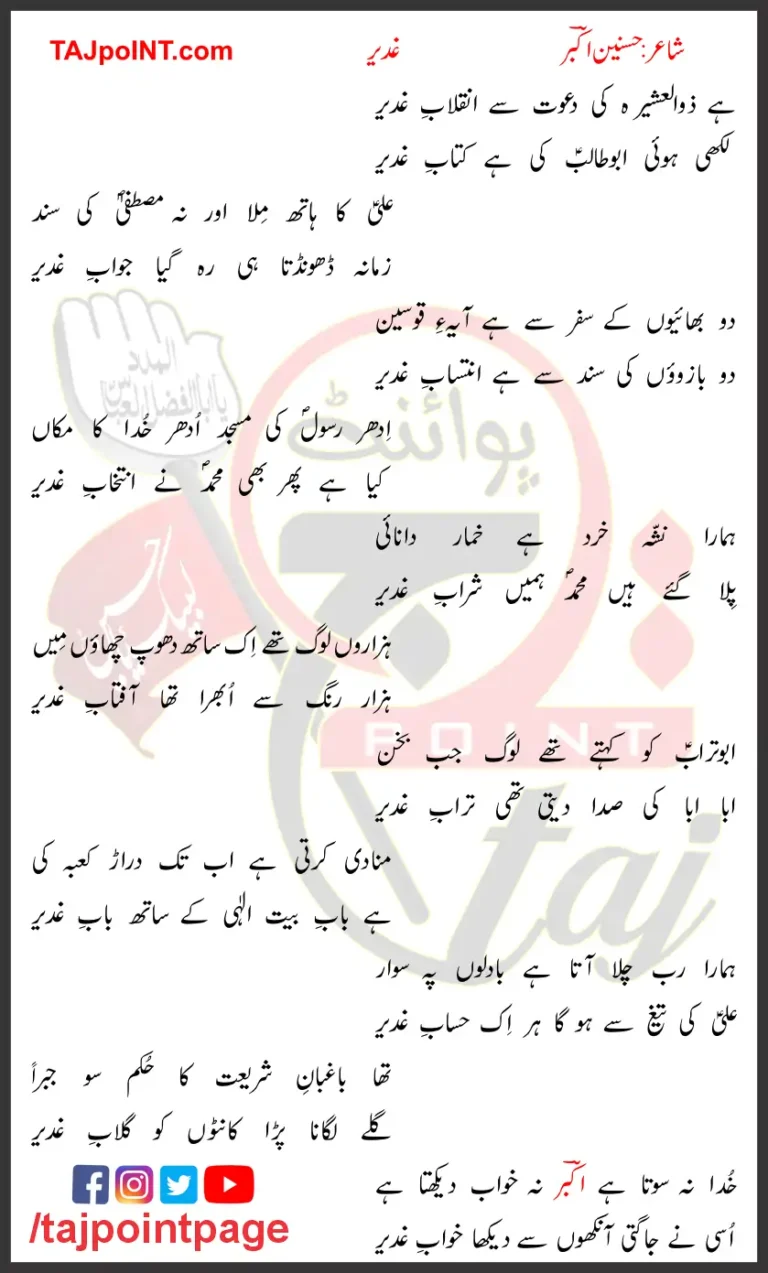 شاعر: حسنین اکبرؔ غدیر TAJpoINT.com
ہے ذوالعشیرہ کی دعوت سے انقلابِ غدیر
لکھی ہوئی ابوطالبؑ کی ہے کتابِ غدیر
علیؑ کا ہاتھ مِلا اور نہ مصطفیٰؐ کی سند
زمانہ ڈھونڈتا ہی رہ گیا جوابِ غدیر
دو بھائیوں کے سفر سے ہے آیہءِ قوسین
دو بازوؤں کی سند سے ہے انتسابِ غدیر
اِدھر رسولؐ کی مسجد اُدھر خُدا کا مکاں
کیا ہے پھر بھی محمدؐ نے انتخابِ غدیر
ہمارا نشّہ خرد ہے خمار دانائی
پِلا گئے ہیں محمدؐ ہمیں شرابِ غدیر
ہزاروں لوگ تھے اِک ساتھ دھوپ چھاؤں مِیں
ہزار رنگ سے اُبھرا تھا آفتابِ غدیر
ابوترابؑ کو کہتے تھے لوگ جب بخن
ابا ابا کی صدا دیتی تھی ترابِ غدیر
منادی کرتی ہے اب تک دراڑ کعبہ کی
ہے بابِ بیت الٰہی کے ساتھ بابِ غدیر
ہمارا رب چلا آتا ہے بادلوں پہ سوار
علیؑ کی تیغ سے ہو گا ہر اِک حسابِ غدیر
تھا باغبانِ شریعت کا حُکم سو جبراً
گلے لگانا پڑا کانٹوں کو گلابِ غدیر
خُدا نہ سوتا ہے اکبرؔ نہ خواب دیکھتا ہے
اُسی نے جاگتی آنکھوں سے دیکھا خوابِ غدیر
/tajpointpage
المدد
یا ابا الفضل العباس
لبیک یا حسین
پوائنٹ
تاج
POINT
taj